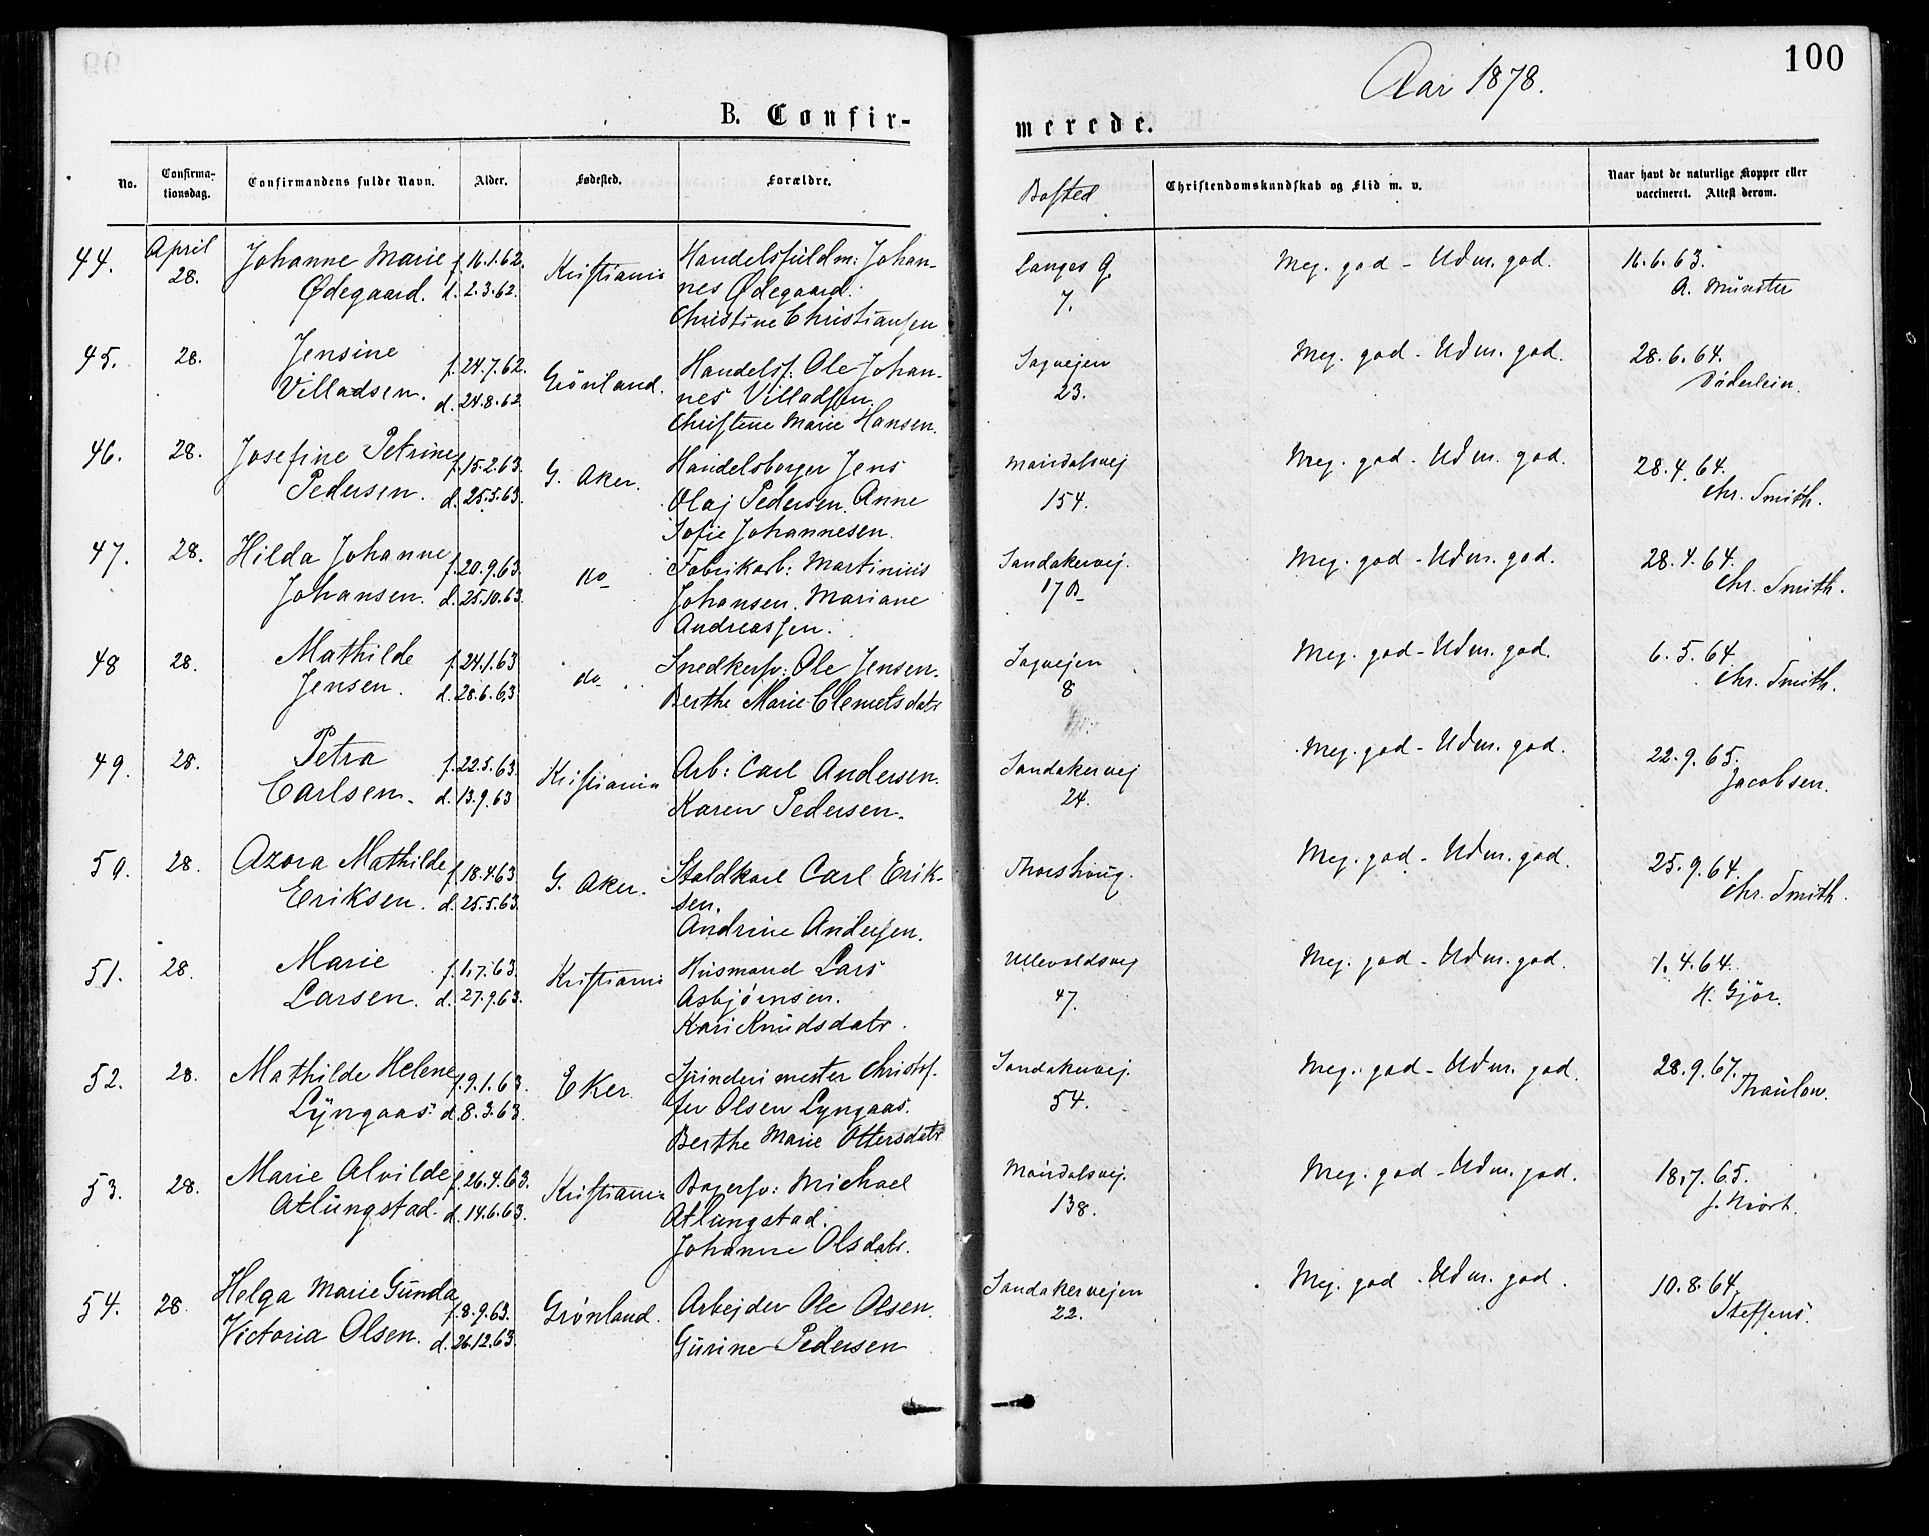 100
Aar 1878.
B. Confir-
merede.
No.
Confirma-
tionsdag.
Confirmandens fulde Navn.
Alder.
Fødested.
Forældre.
Bosted
Christendomskundskab og Flid m. v.
Naar havt de naturlige Kopper eller
vaccineret. Attest derom.
44.
April
28.
Johanne Marie
Ødegaard.
f. 16.1.62.
d. 2.3.62.
Kristiania
Handelsfuldm: Johan-
nes Ødegaard.
Christine Christiansen
Langes G.
7.
Meg. god - Udm. god.
16.6.63.
A. Münster
45.
28.
Jensine
Villadsen.
f. 24.7.62.
d. 24.8.62
Grönland.
Handelsf: Ole Johan-
nes Villadsen.
Christene Marie Hansen.
Sagvejen
23.
Meg. god - Udm. god.
28.6.64.
Döderlein.
46.
28.
Josefine Petrine
Pedersen.
f. 15.2.63.
d. 25.5.63.
G. Aker.
Handelsborger Jens
Olaj Pedersen. Anne
Sofie Johannesen.
Maridalsvej
154.
Meg. god - Udm. god.
28.4.64.
Chr. Smith.
47.
28.
Hilda Johanne
Johansen.
f. 20.9.63.
d. 25.10.63.
do
Fabrikarb: Martinius
Johansen. Mariane
Andreassen.
Sandakervej.
17B
Meg. god - Udm. god.
28.4.64.
Chr. Smith.
48
28.
Mathilde
Jensen.
f. 24.1.63
d. 28.6.63
do
Snedkersv: Ole Jensen.
Berthe Marie Clemetsdatr
Sagvejen
8
Meg. god - Udm. god.
6.5.64.
Chr. Smith.
49.
28.
Petra
Carlsen.
f. 22.5.63.
d. 13.9.63
Kristiania
Arb: Carl Andersen.
Karen Pedersen.
Sandakervej
24.
Meg. god - Udm. god.
22.9.65.
Jacobsen.
50.
28.
Azora Mathilde
Eriksen.
f. 18.4.63
d. 25.5.63.
G. Aker.
Staldkarl Carl Erik-
sen.
Andrine Andersen.
Thorshoug.
Meg. god - Udm. god.
25.9.64.
Chr. Smith.
51.
28.
Marie
Larsen.
f. 1.7.63.
d. 27.9.63.
Kristiania
Husmand Lars
Asbjörnsen.
Kari Knudsdatr.
Ullevoldsvej
47.
Meg. god - Udm. god.
1.4.64.
H. Gjör.
52.
28.
Mathilde Helene
Lyngaas.
f. 9.1.63.
d. 8.3.63.
Eker.
Spinderimester Christof-
fer Olsen Lyngaas.
Berthe Marie Ottersdatr
Sandakervej.
54.
Meg. god - Udm. god.
28.9.67.
Thaulow.
53.
28.
Marie Alvilde
Atlungstad.
f. 26.4.63.
d. 14.6.63.
Kristiania
Bagersv: Michael
Atlungstad.
Johanne Olsdatr.
Maridalsvej.
138.
Meg. god - Udm. god.
18.7.65.
54.
28.
Helga Marie Gunda
Victoria Olsen.
f. 8.9.63.
d. 26.12.63.
Grönland.
Arbejder Ole Olsen.
Gurine Pedersen
Sandakervejen
22.
Meg. god - Udm. god.
10.8.64.
Steffens.